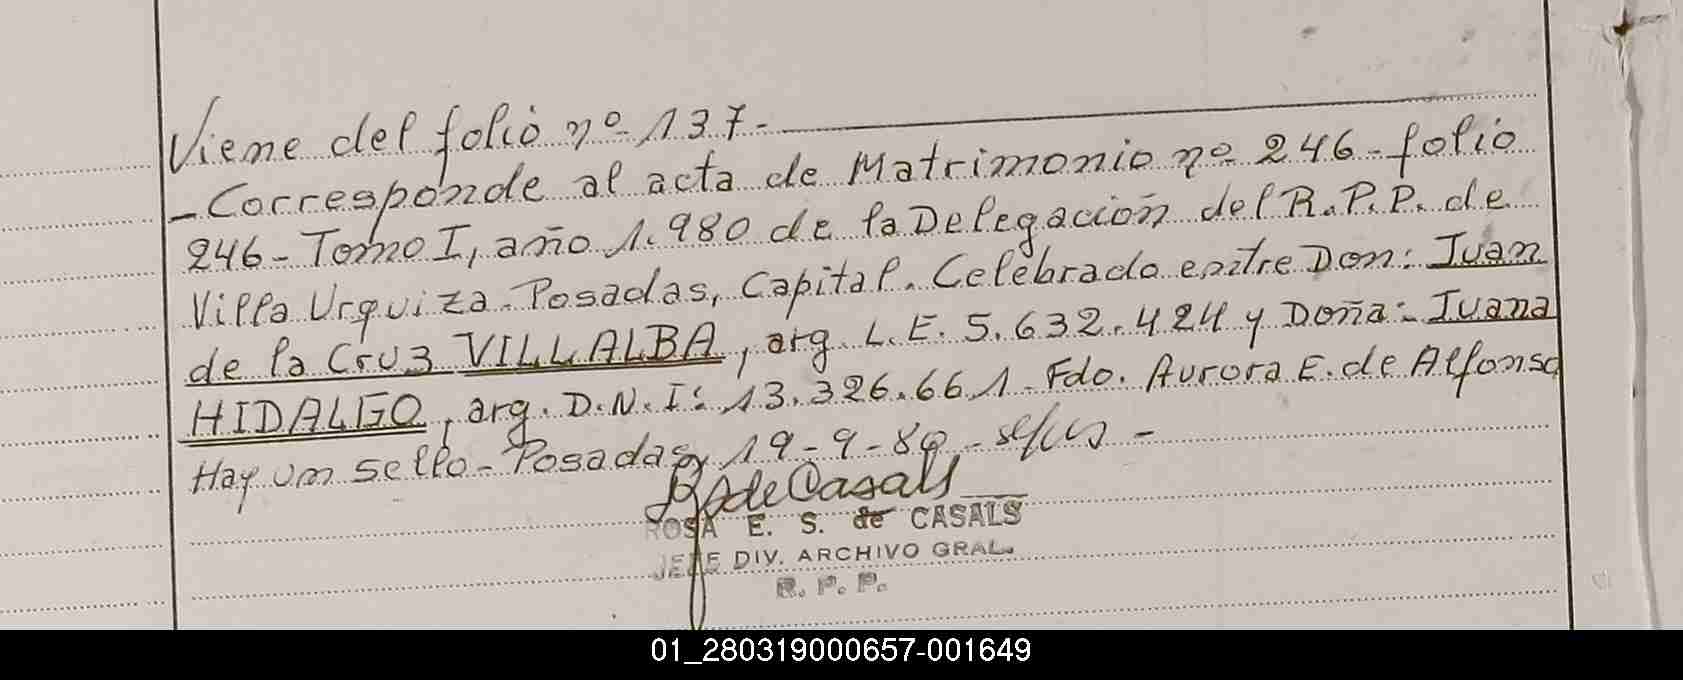 Viene del folio nº 137.-
- Corresponde al acta de Matrimonio nº 246 - folio
246 - Tomo I, año 1.980 de la Delegación del R.P.P. de
Villa Urquiza - Posadas, Capital. Celebrado entre Don: Juan
de la Cruz VILLALBA, arg. L.E. 5.632.424 y Doña: Juana
HIDALGO, arg. D.N.I: 13.326.661 - Fdo. Aurora E. de Alfonso
Hay un sello - Posadas, 19-9-80 -
de Casals
ROSA E. S. de CASALS
JEFE DIV. ARCHIVO GRAL.
R. P. P.
01_280319000657-001649